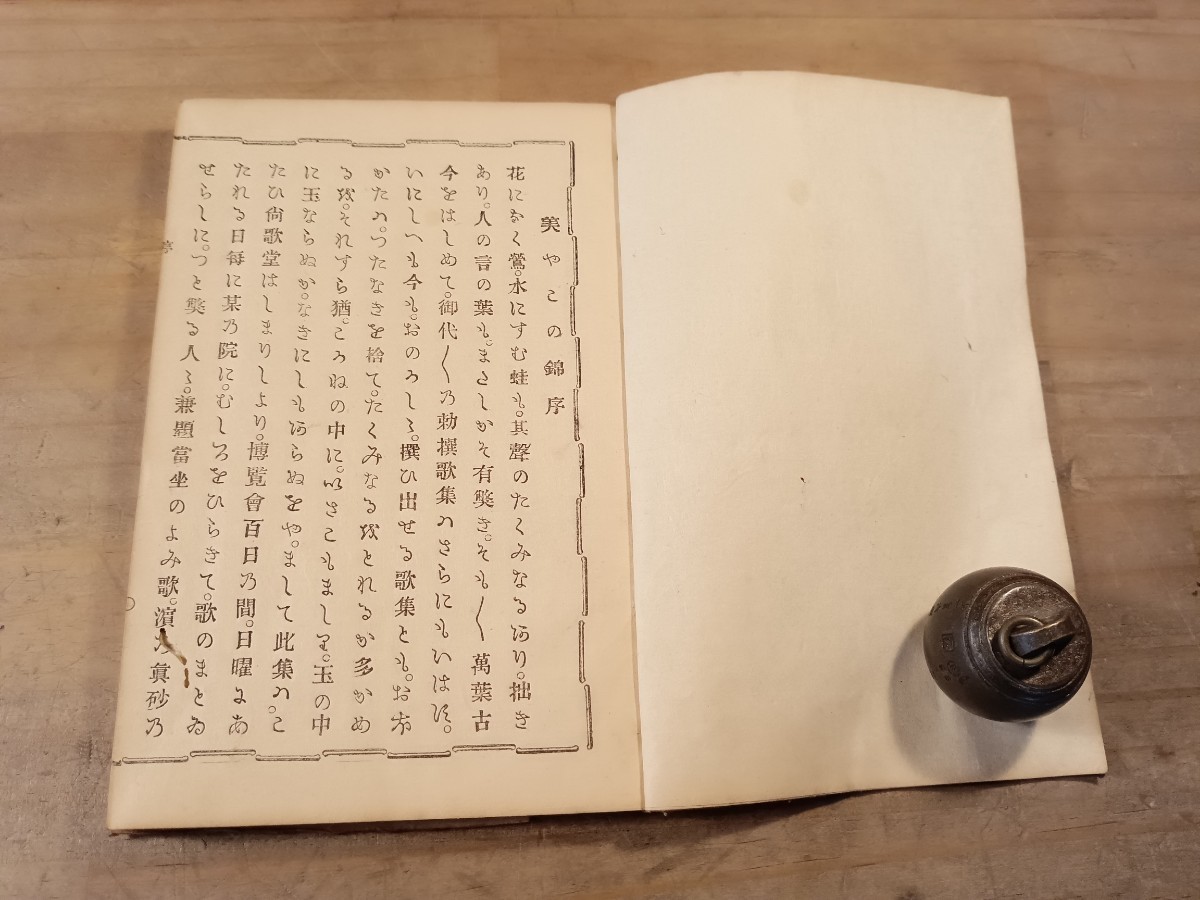 美やこの錦序
花になく鶯。水にすむ蛙も。其聲のたくみなるあり。拙き
あり。人の言の葉も。まさしかそ有 き。そも〳〵萬葉古
今をはしめて。御代〳〵乃勅撰歌集ハさらにもいはす。
いにしへも今も。おのかしゝ。撰ひ出せる歌集とも。おほ
かたハ。つたなきを捨て。たくみなるをとれるか多かめ
るを。それすら猶。こかねの中に。いさこもましり。玉の中
に玉ならぬか。なきにしもあらぬをや。まして此集ハ。こ
たひ尙歌堂はしまりしより。博覧會百日乃間。日曜にあ
たれる日每に某乃院に。むしろをひらきて。歌のまとゐ
せらしに。つと る人ゝ。兼題當坐のよみ歌。濵乃眞砂乃
序